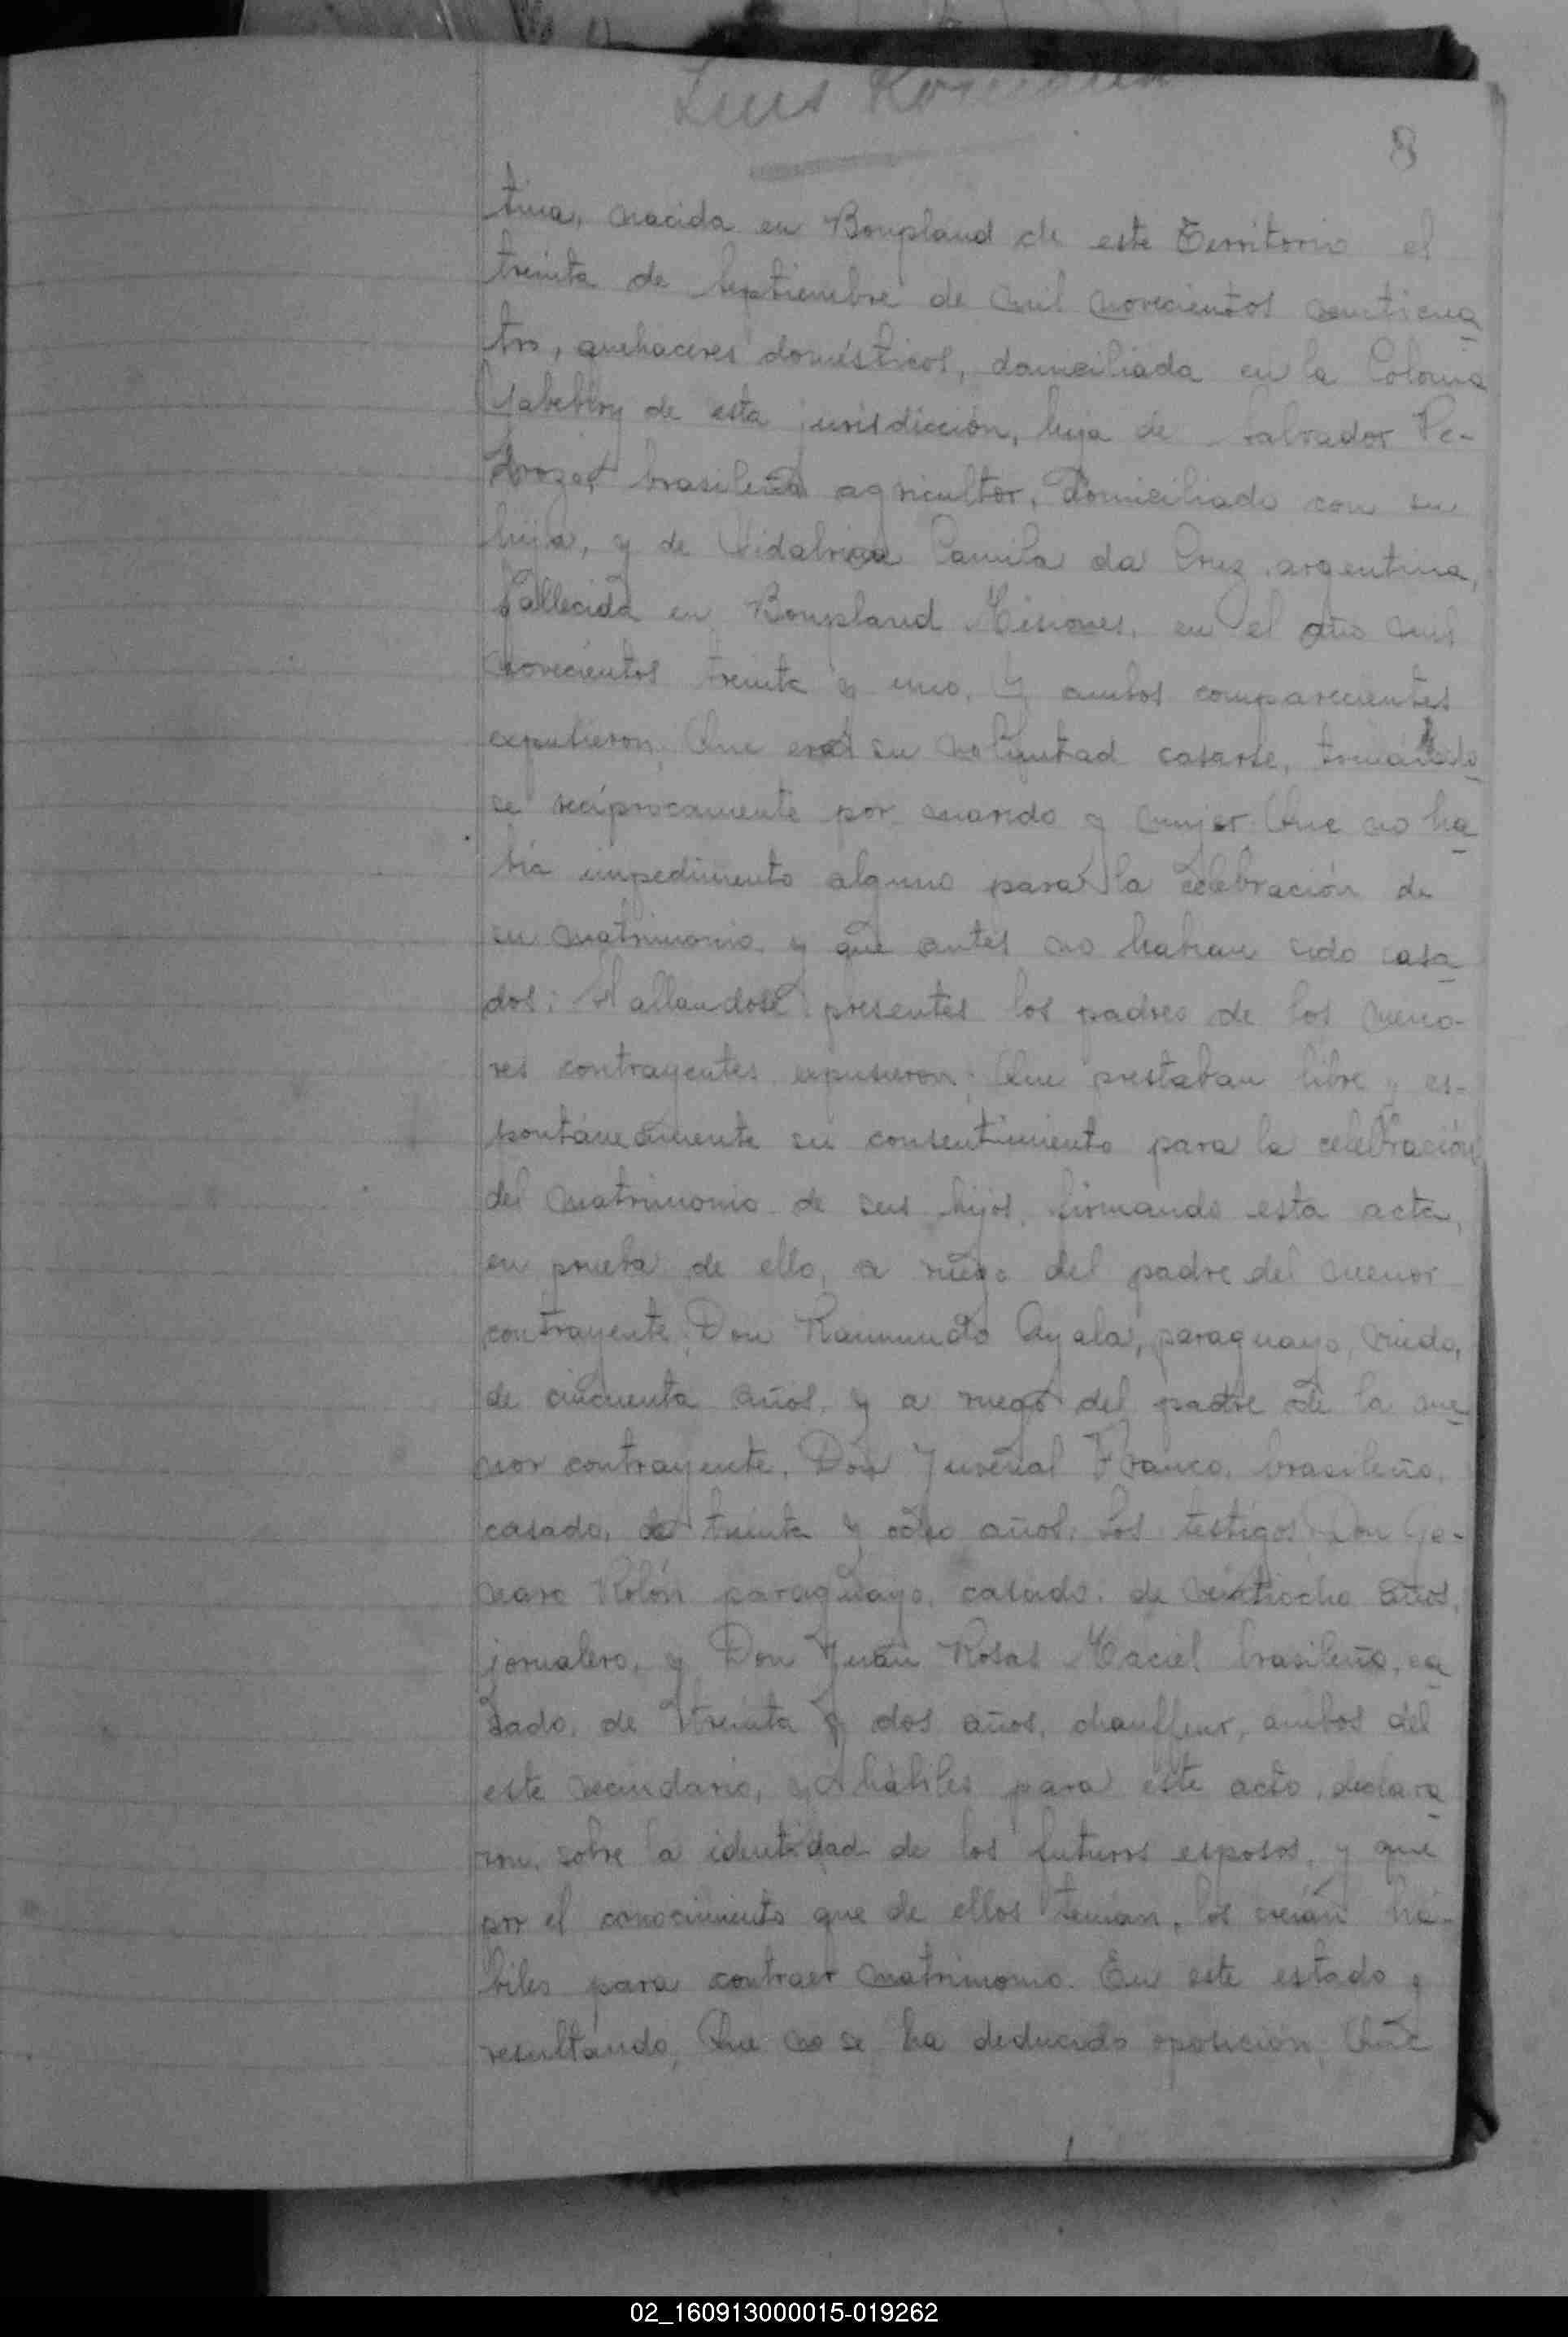 Luis
8
tina, nacida en Bonpland de este Territorio el
treinta de Septiembre de mil novecientos veinticua
tro, quehaceres domésticos, domiciliada en la Colonia
Yabebiry de esta jurisdicción, hija de Salvador Pe-
droza, brasileño agricultor, domiciliado con su
hija, y de Camila da Cruz, argentina,
fallecida en Bonpland Misiones, en el año mil
novecientos treinta y uno. Y ambos comparecientes
expusieron: Que era su voluntad casarse, tomándo
se recíprocamente por marido y mujer. Que no ha
bía impedimento alguno para la celebración de
su matrimonio y que antes no habian sido casa
dos: Hallandose presentes los padres de los meno-
res contrayentes expusieron: Que prestaban libre y es-
pontáneamente su consentimiento para la celebración
del matrimonio de sus hijos, firmando esta acta,
en prueba de ello, a ruego del padre del menor
contrayente, Don Raimundo Ayala, paraguayo, viudo,
de cincuenta años, y a ruego del padre de la me
nor contrayente, Don Juvenal Franco, brasileño,
casado, de treinta y ocho años. Los testigos Don Ge-
naro Rolón paraguayo, casado, de veintiocho años,
jornalero, y Don Juan Rosas Maciel brasileño, ca
sado, de treinta y dos años, chauffeur, ambos del
este vecindario, y hábiles para este acto, declara
ron, sobre la identidad de los futuros esposos, y que
por el conocimiento que de ellos tenian, los creían há-
biles para contraer matrimonio. En este estado y
resultando, Que no se ha deducido oposición, Que
02_160913000015-019262